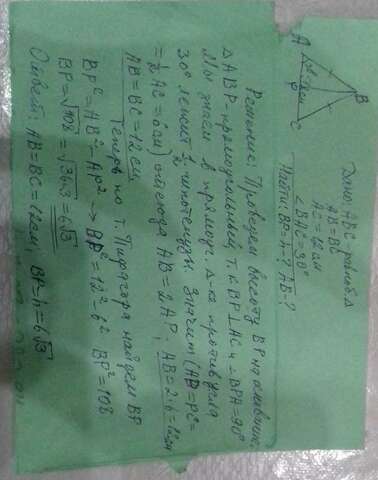 A
B
P
C
Дано: ABC - равноб. Δ
AB=BC
AC=12см
∠BAC=30°
Найти: BP=h-? AB-?
Решение: Проведем высоту BP на основание
ΔABP- прямоугольный, т.к BP⊥AC и ∠BPA=90°
Мы знаем в прямоуг. Δ-ке против угла
30° лежит ½ гипотенузы. Значит (AP=PC=
=½AC=6см) отсюда AB=2AP; AB=2·6=12см
AB=BC=12см,
Теперь по т. Пифагора найдем BP
BP²=AB²-AP² → BP²=12²-6² BP²=108
BP=√108=√36·3=6√3
Ответ: AB=BC=12см; BP=h=6√3